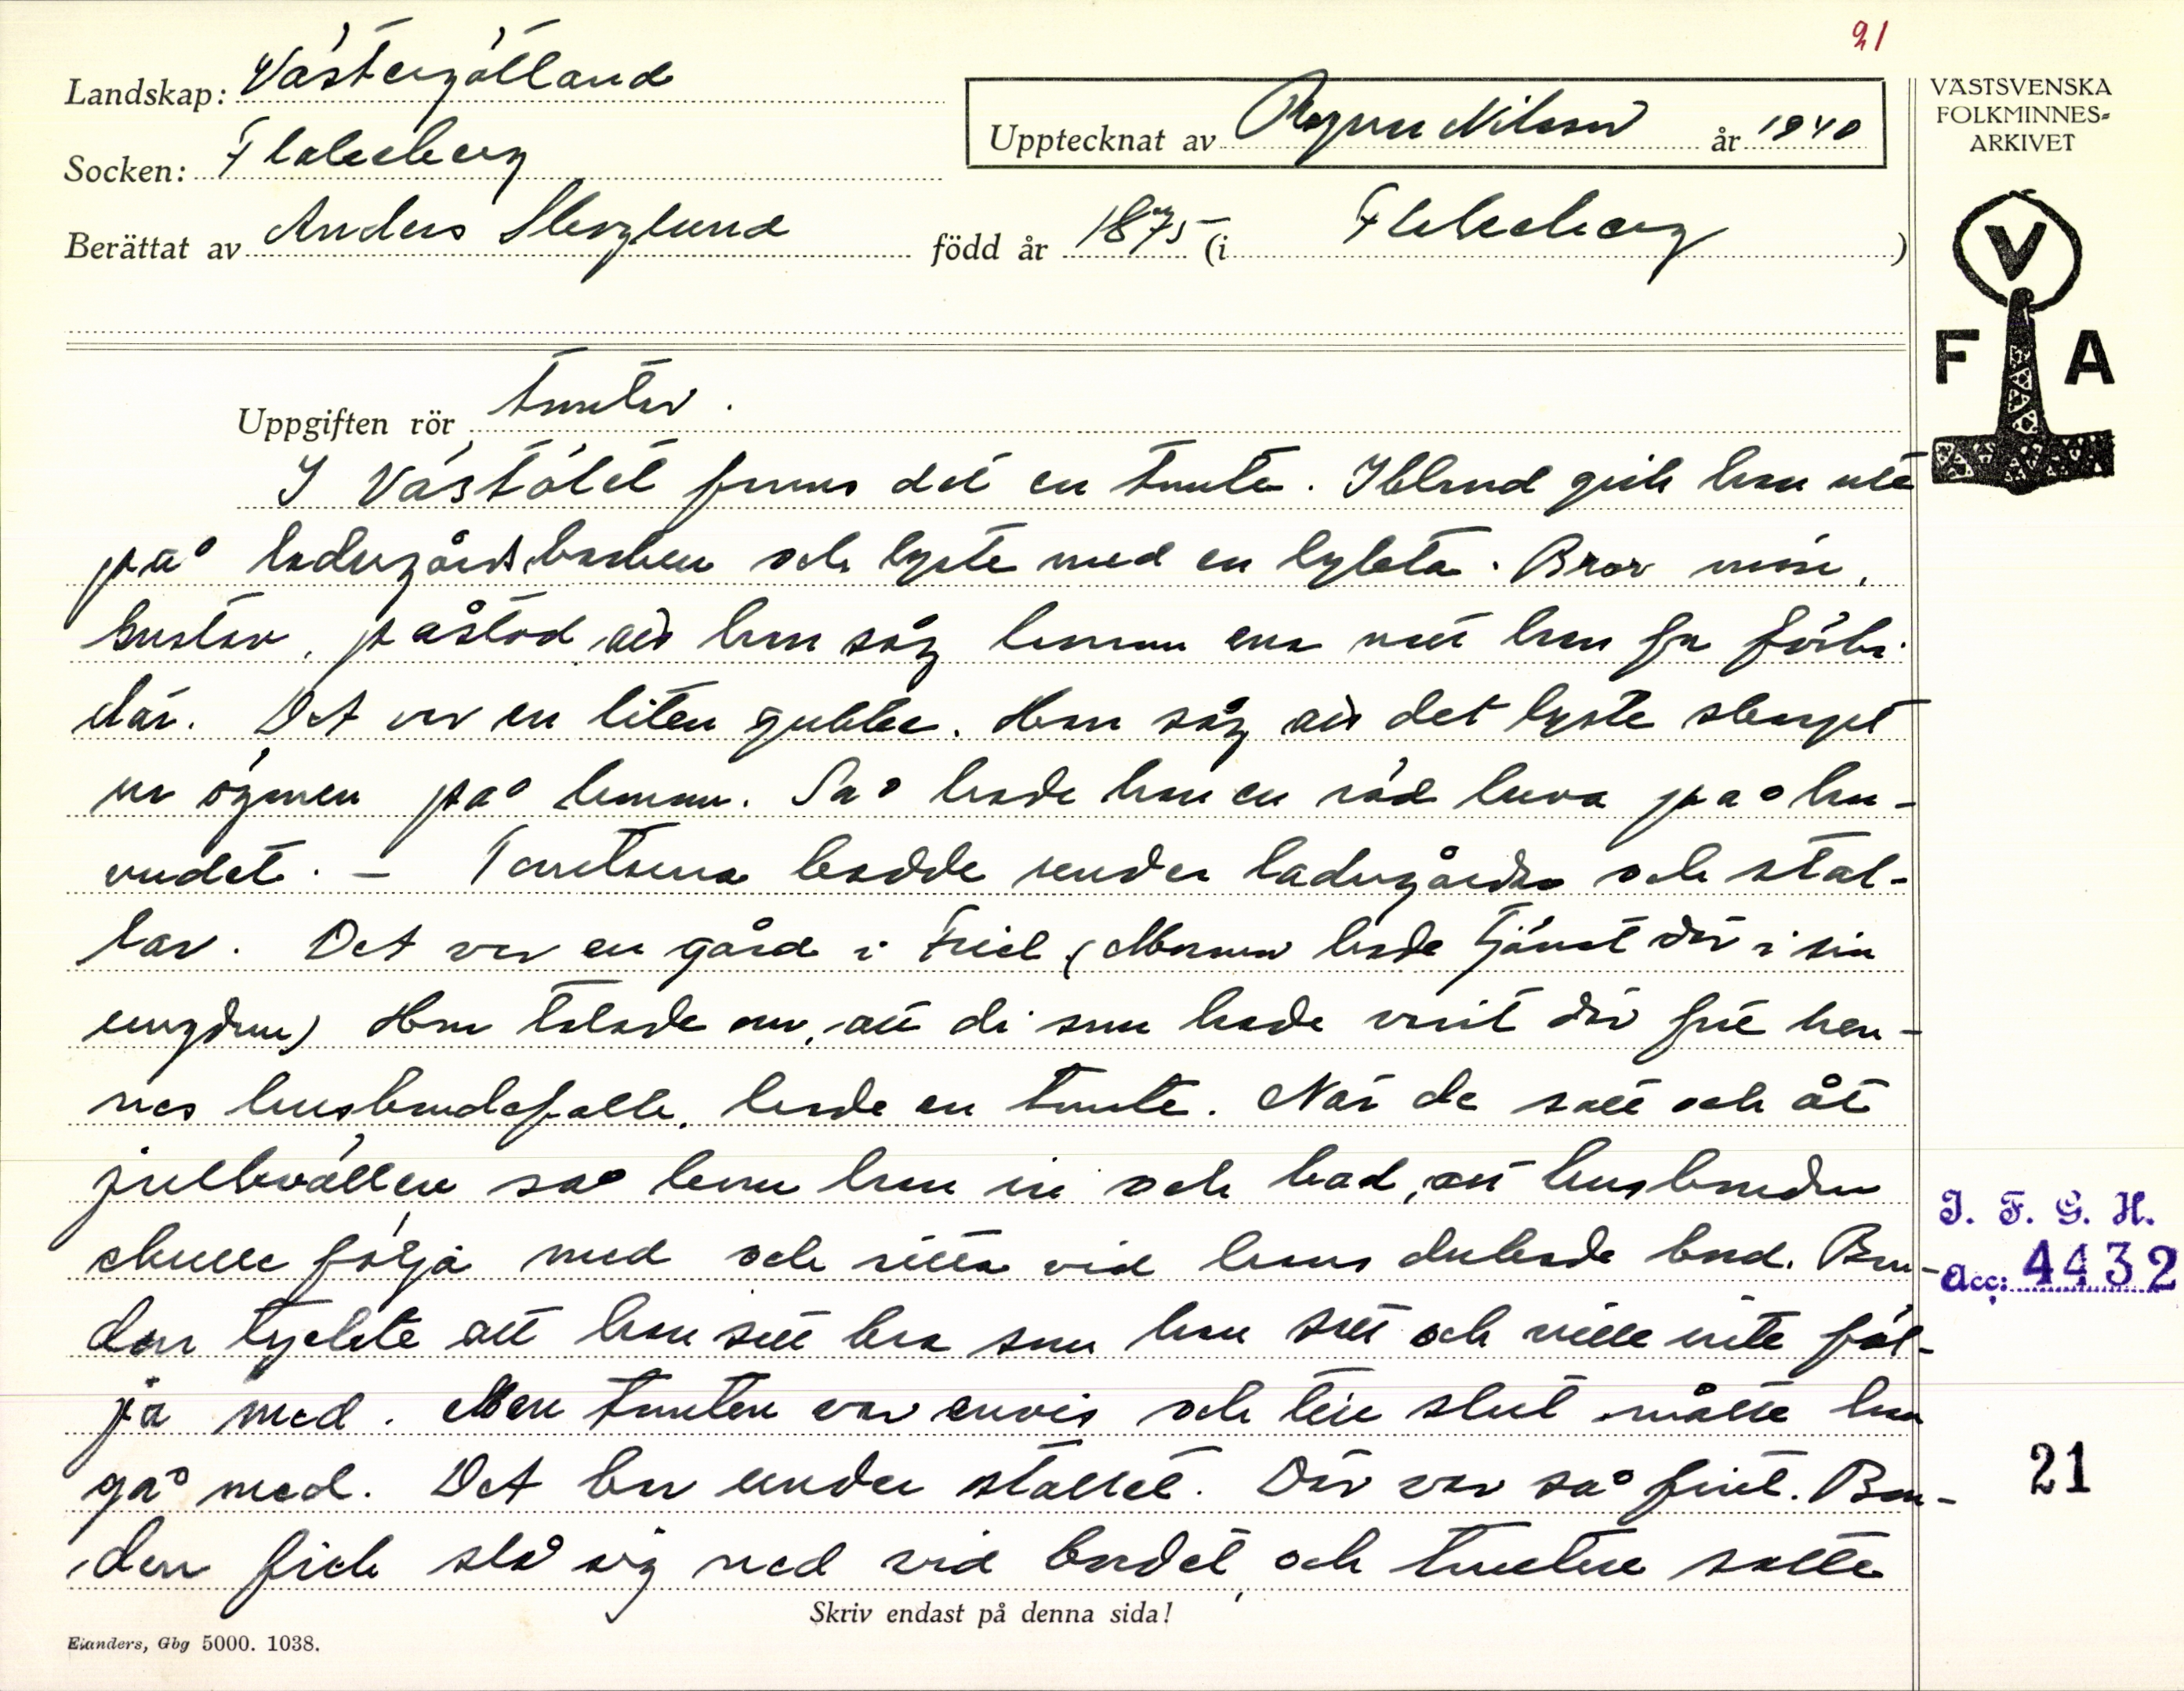 21
Landskap: Västergötland
Socken: Flakeberg
Berättat av Anders Skoglund född år 1875 (i Flakeberg)
Upptecknat av Ragnar Nilsson år 1940
VÄSTSVENSKA
FOLKMINNES-
ARKIVET
V
F A
Uppgiften rör tomten.
I Väståtet fanns det en tomte. Ibland gick han ute
på ladugårdsbacken och lyste med en lykta. Bror min,
Gustav, påstod att han såg honom ena natt han for förbi
där. Det var en liten gubbe. Han såg att det lyste skarpt
ur ögonen på honom. Så hade han en röd luva på hu-
vudet. – Tomtarna bodde under ladugårdar och stal-
lar. Det var en gård i Friel (Mormor hade tjänat där i sin
ungdom) Hon talade om, att di som hade varit där före hen-
nes husbondefolk, hade en tomte. När de satt och åt
julkvällen så kom han in och bad, att husbonden
skulle följa med och sitta vid hans dukade bord. Bon-
den tyckte att han satt bra som han satt och ville inte föl-
ja med. Men tomten var envis och till slut måtte han
gå med. Det bar under stallet. Där var så fint. Bon-
den fick slå sig ned vid bordet, och tomten satte
Skriv endast på denna sida!
Elanders, Gbg 5000. 1038.
I. F. G. H.
Acc: 4432
21